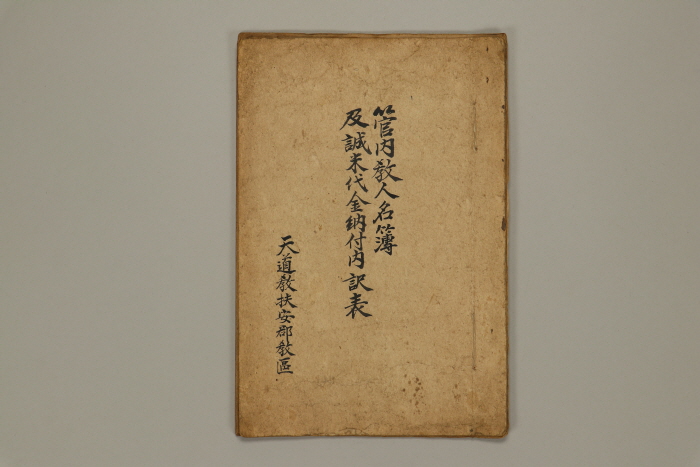 管內敎人名簿
及誠米代金納付內訳表
天道敎扶安郡敎區